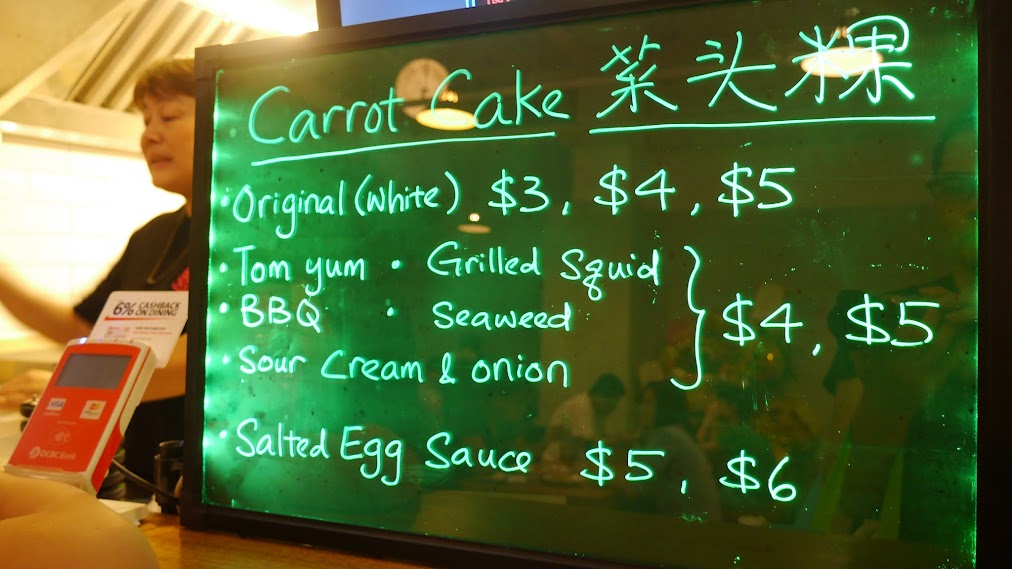 Carrot Cake 菜头粿
• Original (White) $3, $4, $5
• Tom yum • Grilled Squid
• BBQ • Seaweed
• Sour Cream & onion
} $4, $5
• Salted Egg Sauce $5, $6
6% CASHBACK
ON DINING
VISA
OCBC Bank